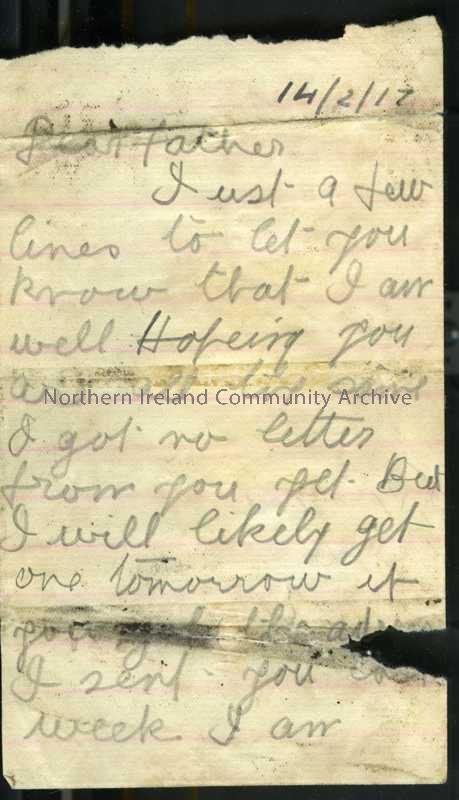 14/2/17
Dear Father
Just a few
lines to let you
know that I am
well Hopeing you
are all the same
Northern Ireland Community Archive
I got no letter
from you yet. But
I will likely get
one tomorrow if
going by the
I sent you
week I am